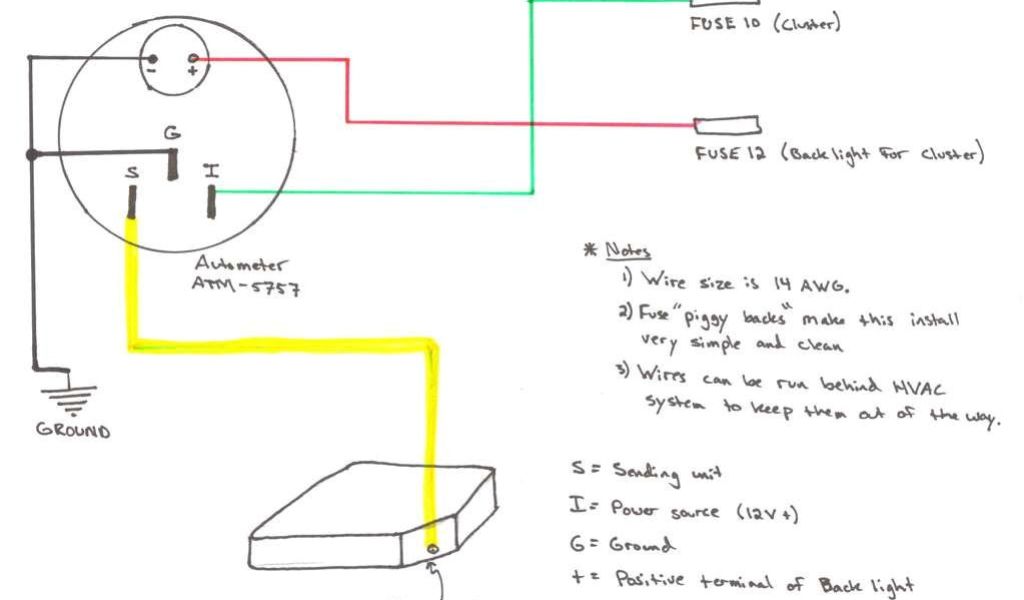 FUSE 10 (Cluster)
- +
G
FUSE 12 (Backlight For Cluster)
S I
Autometer
ATM-5757
* Notes
1) Wire size is 14 AWG.
2) Fuse "piggy backs" make this install
very simple and clean
3) Wires can be run behind HVAC
system to keep them out of the way.
GROUND
S = Sending unit
I = Power source (12V+)
G = Ground
+ = Positive terminal of Back light